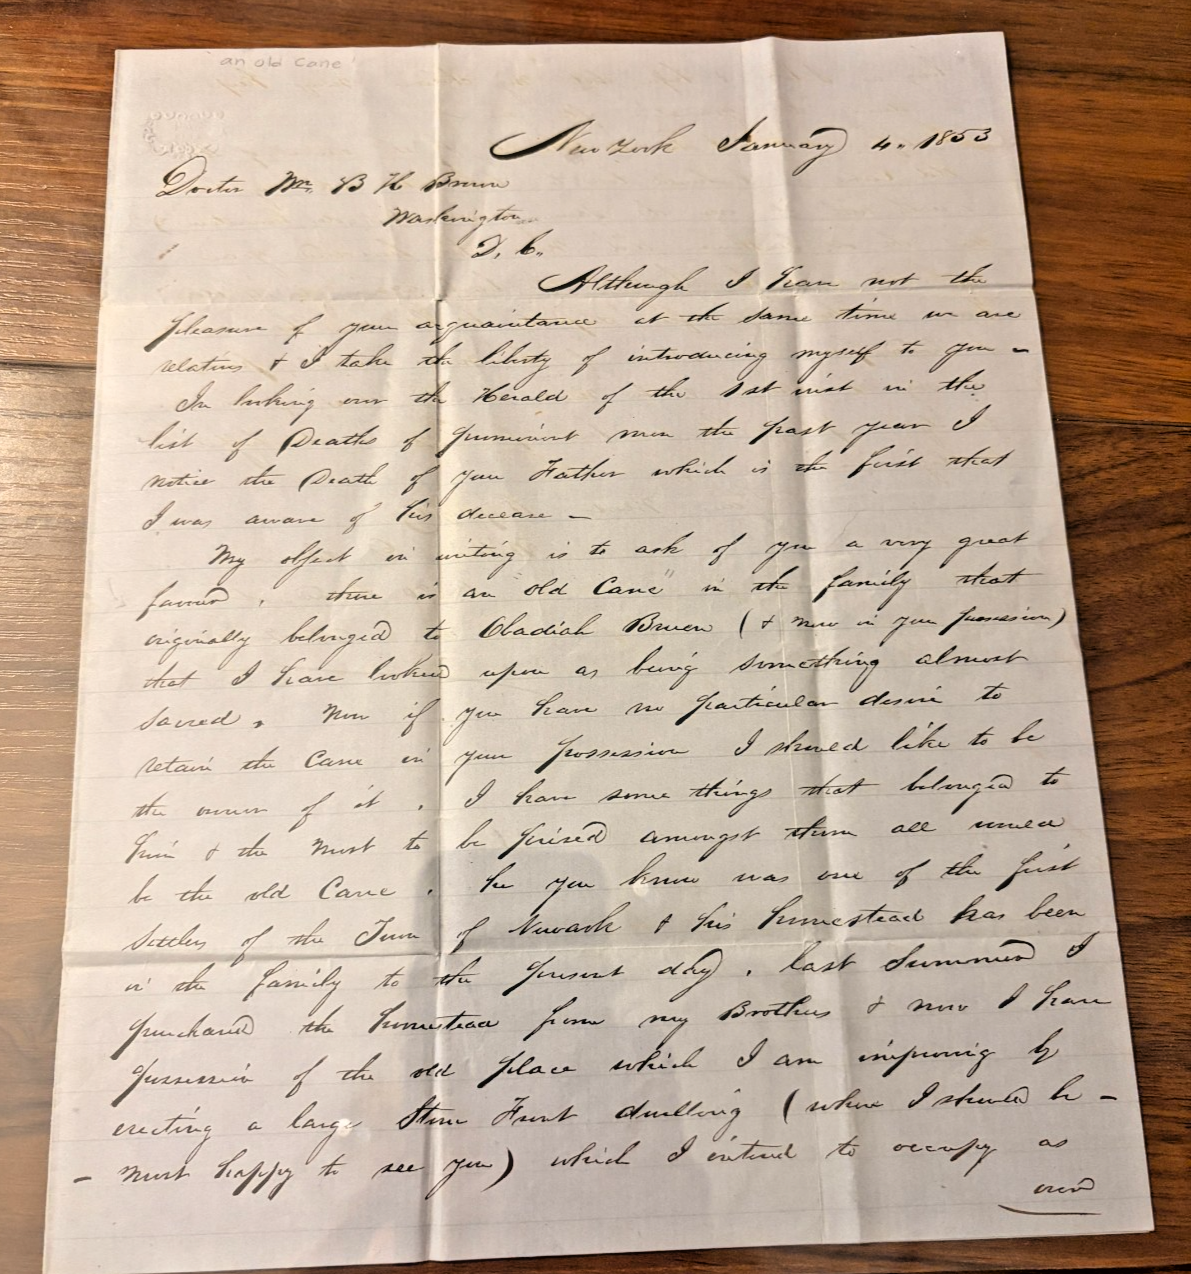 an old Cane
New York January 4. 1853
Doctor Wm B H Bruen
Washington
D. C.
Although I have not the
pleasure of your acquaintance at the same time we are
relatives & I take the liberty of introducing myself to you –
In looking over the Herald of the 1st inst in the
list of Deaths of prominent men the past year I
notice the Death of your Father which is the first that
I was aware of his decease –
My object in writing is to ask of you a very great
favour, there is an "old Cane" in the family that
originally belonged to Obadiah Bruen (& now in your possession)
that I have looked upon as being something almost
sacred, Now if you have no particular desire to
retain the Cane in your possession I should like to be
the owner of it. I have some things that belonged to
him & the most to be prized amongst them all would
be the old Cane. he you know was one of the first
settlers of the Town of Newark & his homestead has been
in the family to the present day, last Summer I
purchased the homestead from my Brothers & now I have
possession of the old place which I am improving by
erecting a large Stone Front dwelling (where I should be –
– most happy to see you) which I intend to occupy as